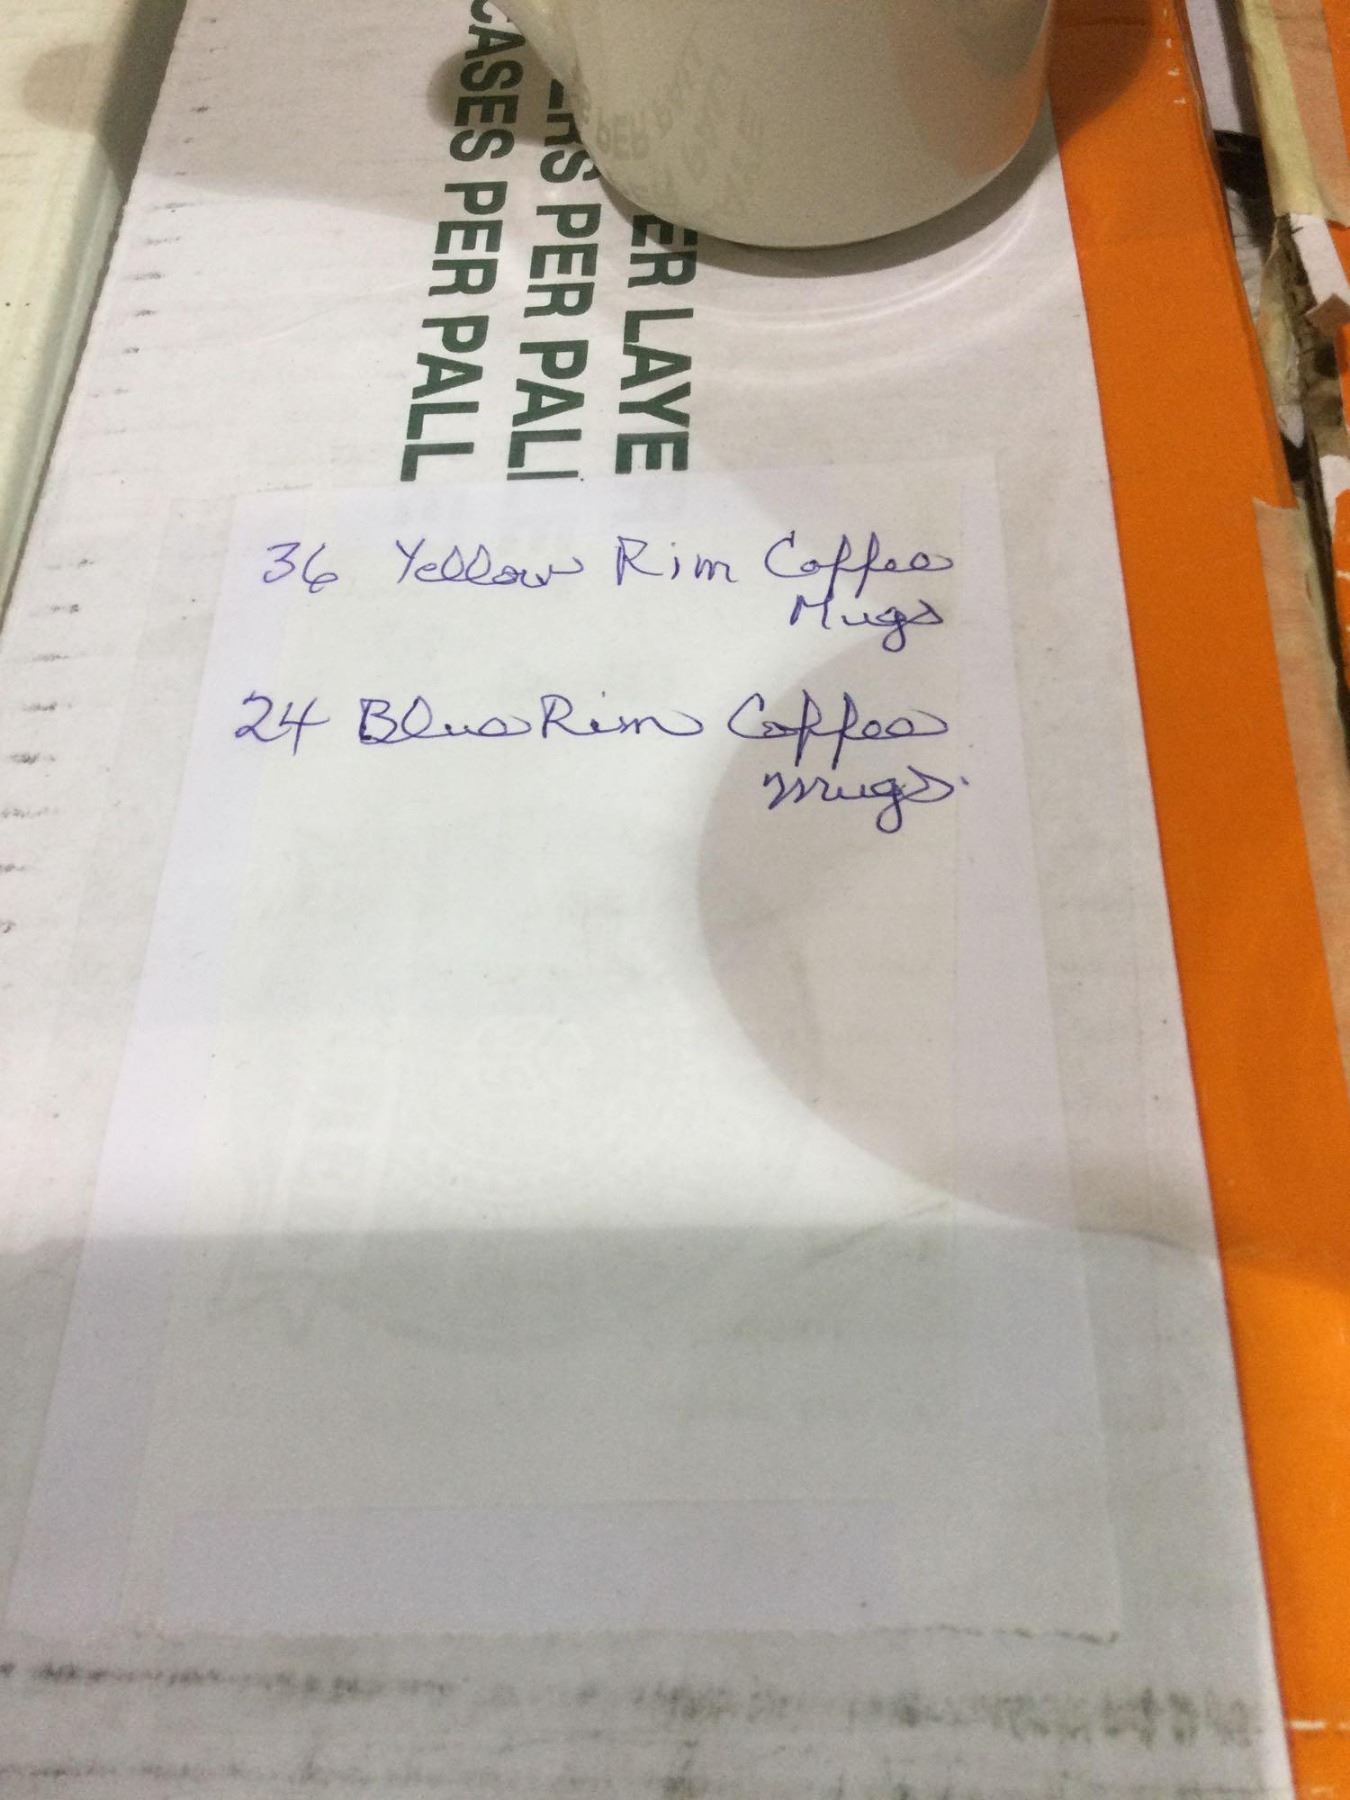 CASES PER PALL
ERS PER PALL
PER LAYE
36 Yellow Rim Coffee
Mugs
24 Blue Rim Coffee
mugs.